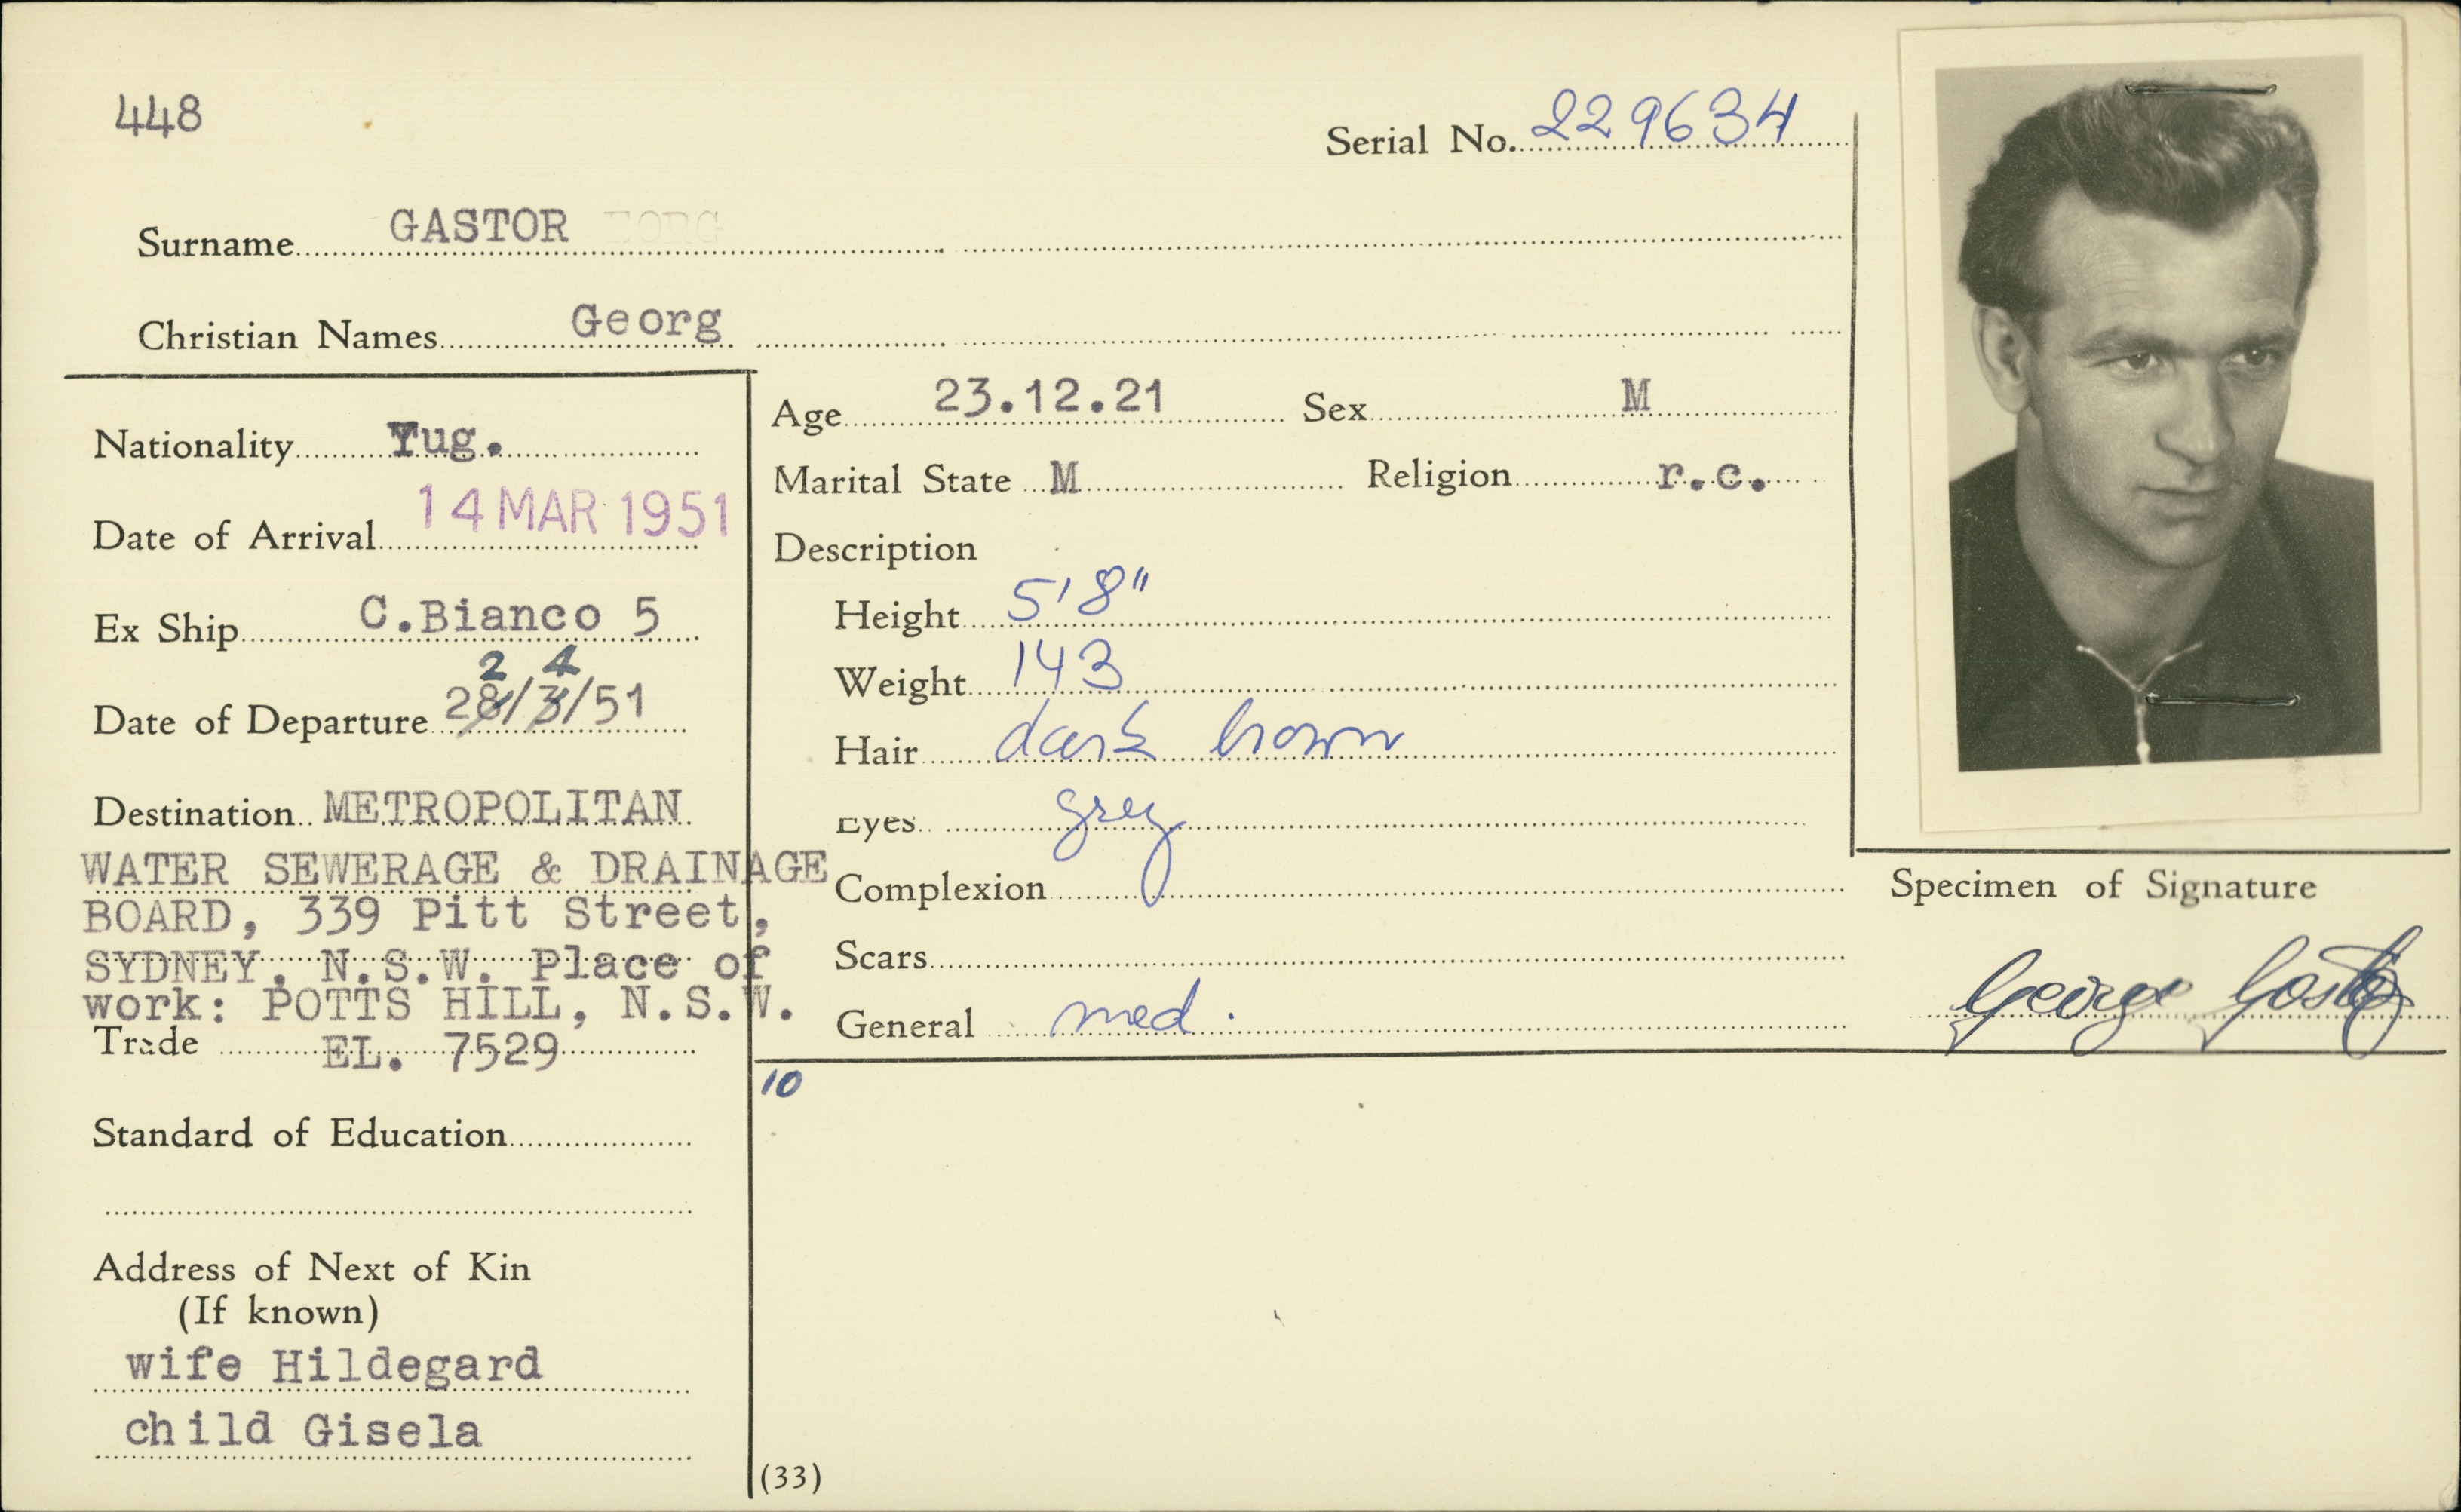 448
Serial No. 229634
Surname GASTOR
Christian Names Georg
Nationality Yug.
Date of Arrival 14 MAR 1951
Ex Ship C.Bianco 5
2 4
Date of Departure 28/3/51
Destination METROPOLITAN
WATER SEWERAGE & DRAINAGE
BOARD, 339 Pitt Street,
SYDNEY. N.S.W. Place of
work: POTTS HILL, N.S.W.
Trade EL. 7529
Standard of Education
Address of Next of Kin
(If known)
wife Hildegard
child Gisela
Age 23.12.21 Sex M
Marital State M Religion r.c.
Description
Height 5'8"
Weight 143
Hair dark brown
Eyes grey
Complexion
Scars
General med.
10
(33)
Specimen of Signature
George Gastor